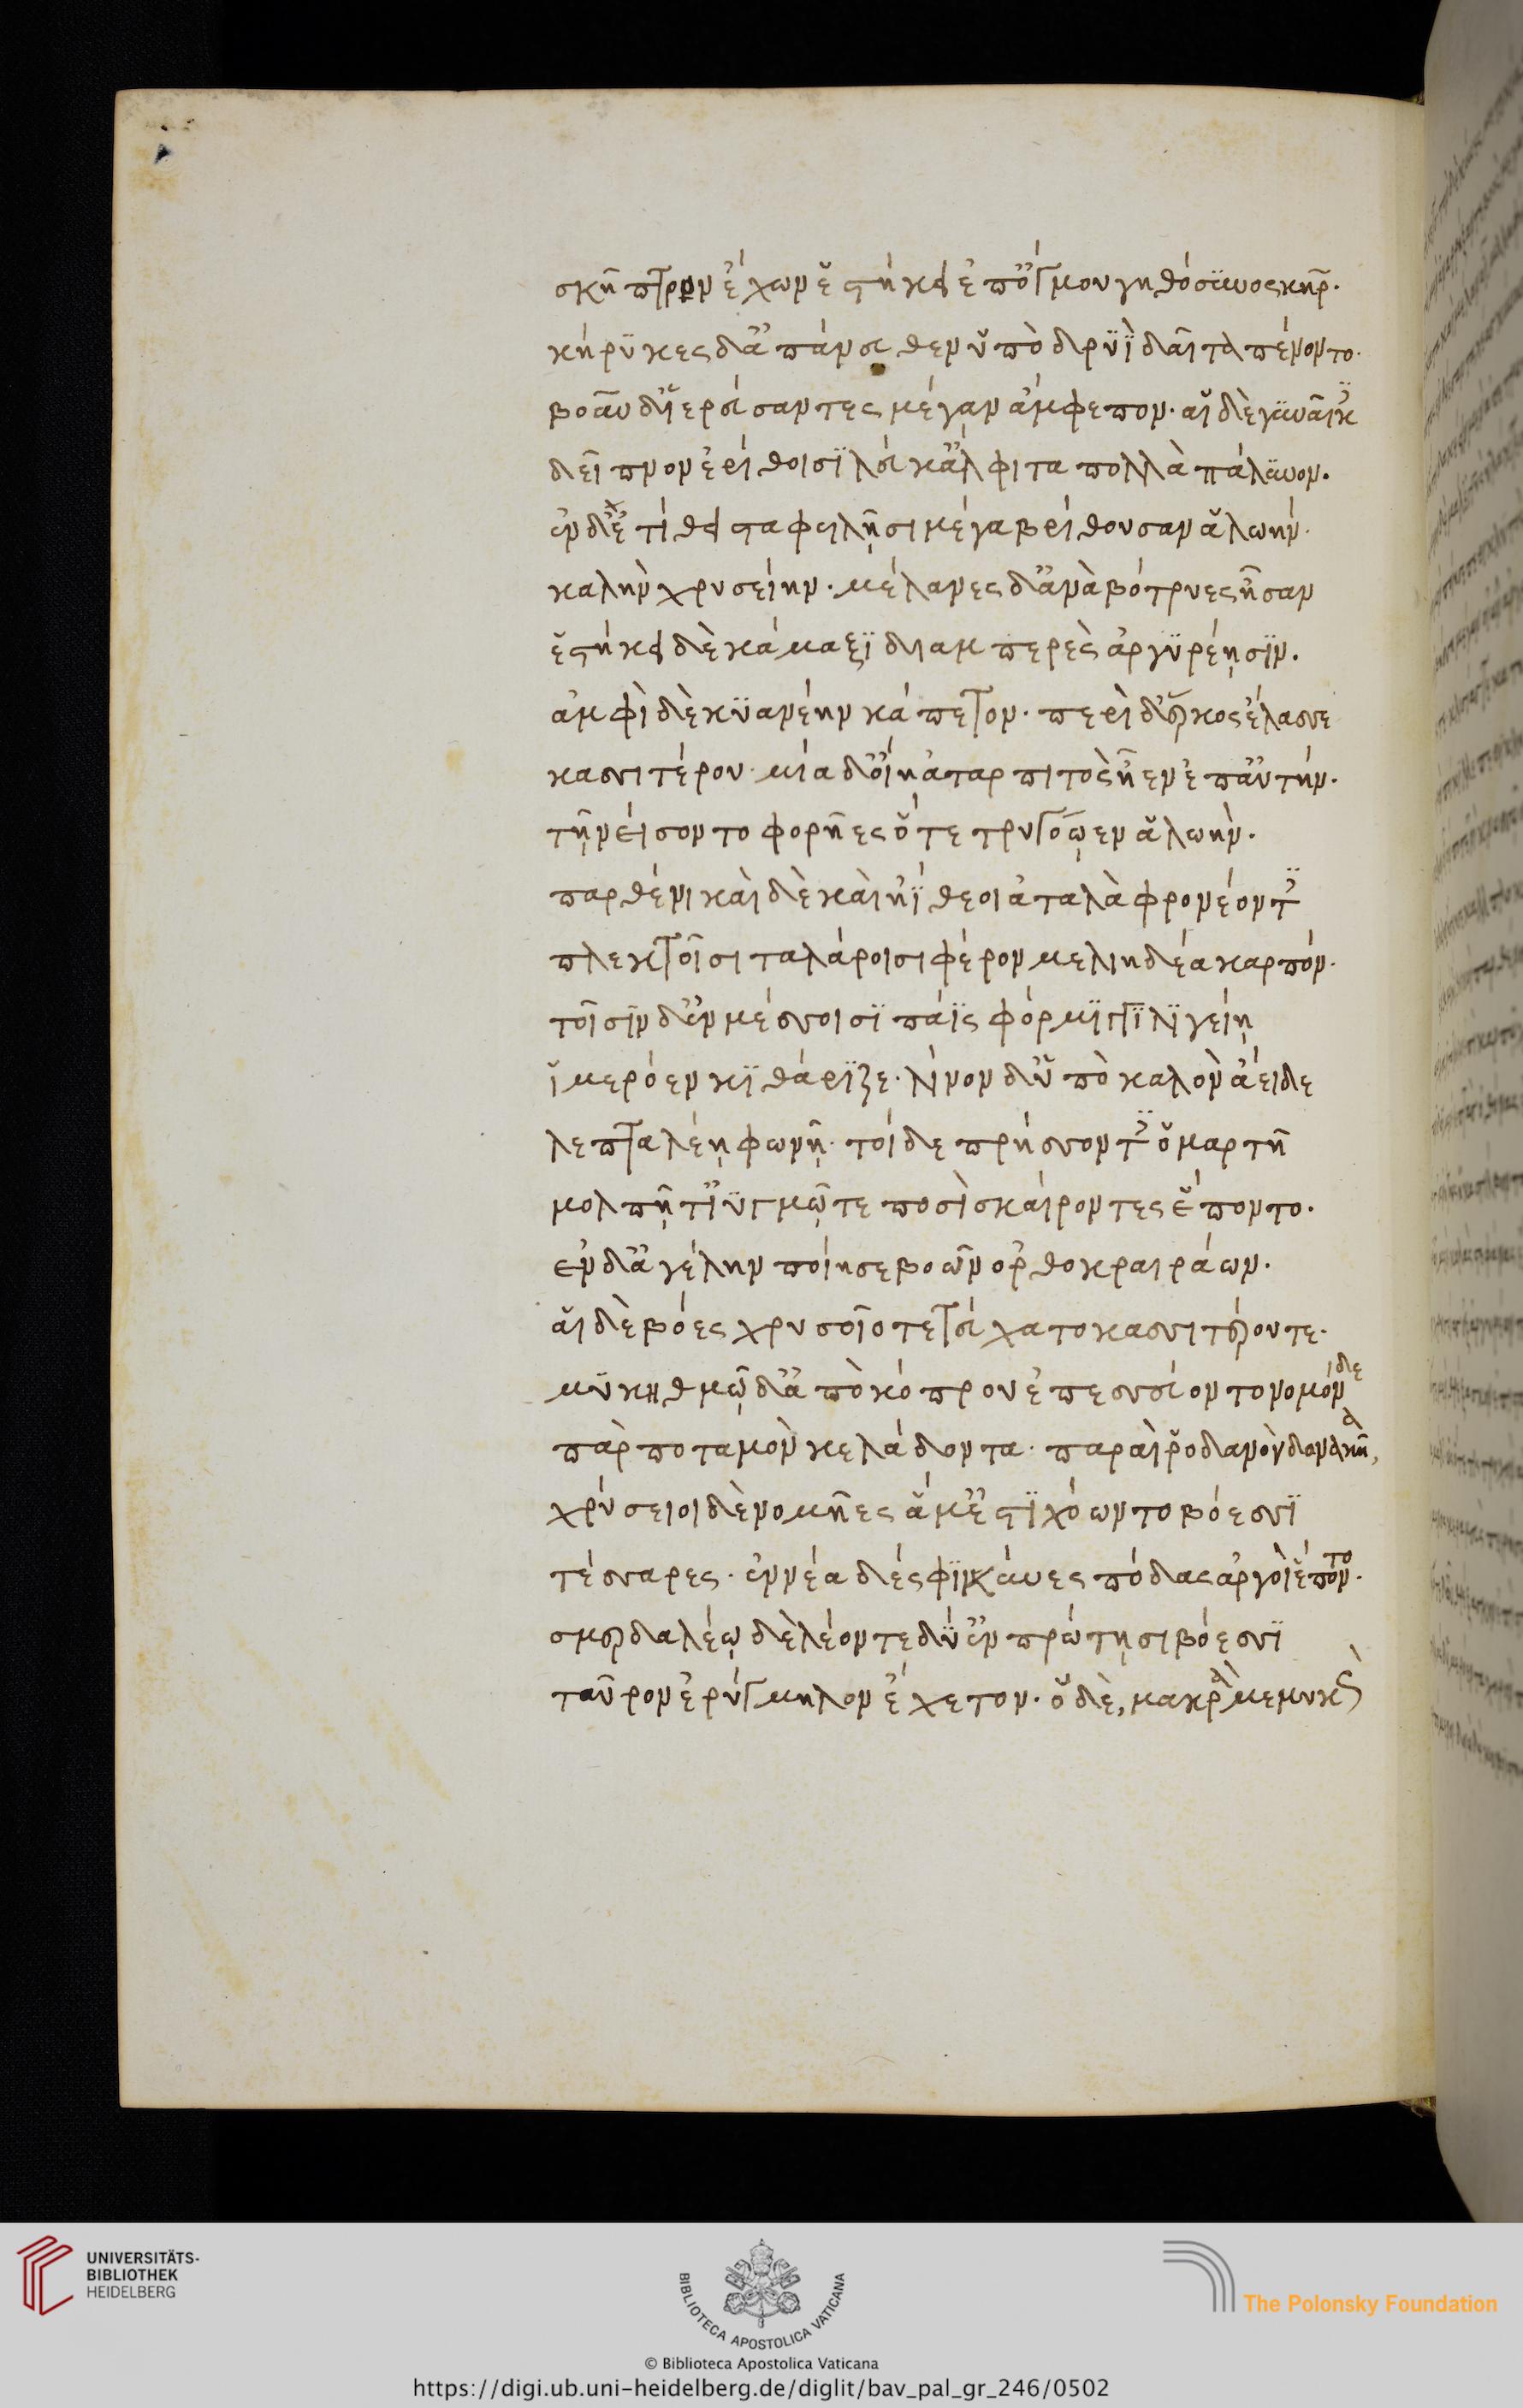 σκῆπτρον ἔχων ἑστήκει ἐπ' ὄγμου γηθόσυνος κῆρ.
κήρϋκες δ' ἀπάνευθεν ὑπὸ δρυῒ δαῖτα πένοντο.
βοῦν δ' ἱερεύσαντες μέγαν ἄμφεπον. αἱ δὲ γυναῖκες
δεῖπνον ἐρίθοισϊ λεύκ' ἄλφιτα πολλὰ πάλυνον.
ἐν δ' ἐτίθει σταφυλῇσι μέγα βρίθουσαν ἀλωήν.
καλὴν χρυσείην. μέλανες δ' ἀνὰ βότρυες ἦσαν
ἑστήκει δὲ κάμαξϊ διαμπερὲς ἀργϋρέῃσϊν.
ἀμφὶ δὲ κϋανέην κάπετον. περὶ δ' ἕρκος ἔλασσε
κασσιτέρου. μία δ' οἴη ἀταρπιτὸς ἦεν ἐπ' αὐτήν.
τῇ νείσοντο φορῆες ὅτε τρυγόῳεν ἀλωήν.
παρθένικαὶ δὲ καὶ ἠΐθεοι ἀταλὰ φρονέοντες
πλεκτοῖσι ταλάροισι φέρον μελιηδέα καρπόν.
τοῖσιν δ' ἐν μέσσοισϊ πάϊς φόρμϊγγϊ λϊγείῃ
ἱμερόεν κϊθάρϊζε. λίνον δ' ὑπὸ καλὸν ἄειδε
λεπταλέῃ φωνῇ. τοί δε πρήσσοντες ὁμαρτῆ
μολπῇ τ' ἰϋγμῷ τε ποσὶ σκαίροντες ἕποντο.
ἐν δ' ἀγέλην ποίησε βοῶν ὀρθοκραιράων.
αἱ δὲ βόες χρυσοῖο τετεύχατο κασσιτέρου τε.
μϋκηθμῷ δ' ἀπὸ κόπρου ἐπεσσεύοντο νομόνδε
πὰρ ποταμὸν κελάδοντα. παραὶ ῥοδανὸν δονακῆα,
χρύσειοι δὲ νομῆες ἅμ' ἐστϊχόωντο βόεσσϊ
τέσσαρες. ἐννέα δέ σφϊ κύνες πόδας ἀργοὶ ἕποντο.
σμερδαλέω δὲ λέοντε δύ' ἐν πρώτῃσι βόεσσϊ
ταῦρον ἐρύγμηλον ἔχετον. ὁ δὲ, μακρὰ μεμυκὼς
UNIVERSITÄTS-
BIBLIOTHEK
HEIDELBERG
BIBLIOTECA APOSTOLICA VATICANA
The Polonsky Foundation
© Biblioteca Apostolica Vaticana
https://digi.ub.uni-heidelberg.de/diglit/bav_pal_gr_246/0502